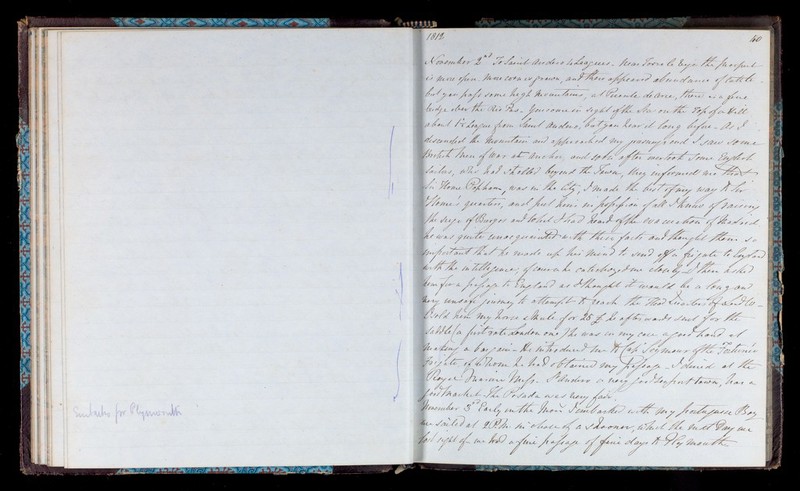 Embarks for Plymouth
1812
40
November 2nd To Saint Andero Leagues. Near Torre la Vega the prospect
is more open. more corn is grown, and there appeared abundance of cattle
but you pass some high mountains, at there is a fine
bridge over the Rio Pas. You come in sight of the Sea on the Top of a Hill
about 1½ League from Saint Andero, but you hear it long before. As I
descended the mountain and approached my journeys end I saw some
British Men of War at anchor, and soon after overtook some English
Sailors, who had strolled beyond the Town, they informed me that
Sir Home Popham, was in the City, I made the best of my way to Sir
Home's quarters, and put him in possession of all I knew of raising
the siege of Burgos and what I had heard of the evacuation of Madrid
he was quite unacquainted with these facts and thought them so
important that he made up his mind to send off a frigate to England
with the intelligence; of course he catechized me closely. I then asked
him for a passage to England as I thought it would be a long and
very unsafe journey to attempt to reach the
I sold him my horse & Mule for 25 £ he afterwards sent for the
saddle (a first rate London one) he was in my case a good hand at
making a bargain. He introduced me to Capt Seymour of the
frigate of whom he had obtained my passage. I dined at the
Royal Marine Mess. St Andero a very good seaport town, has a
good market. The Posada was very fair.
November 3rd Early in the Morn I embarked with my portuguese Boy
we sailed at 2 P.M. in chase of a schooner, which the next Day we
lost sight of. we had a fine passage of five days to Plymouth